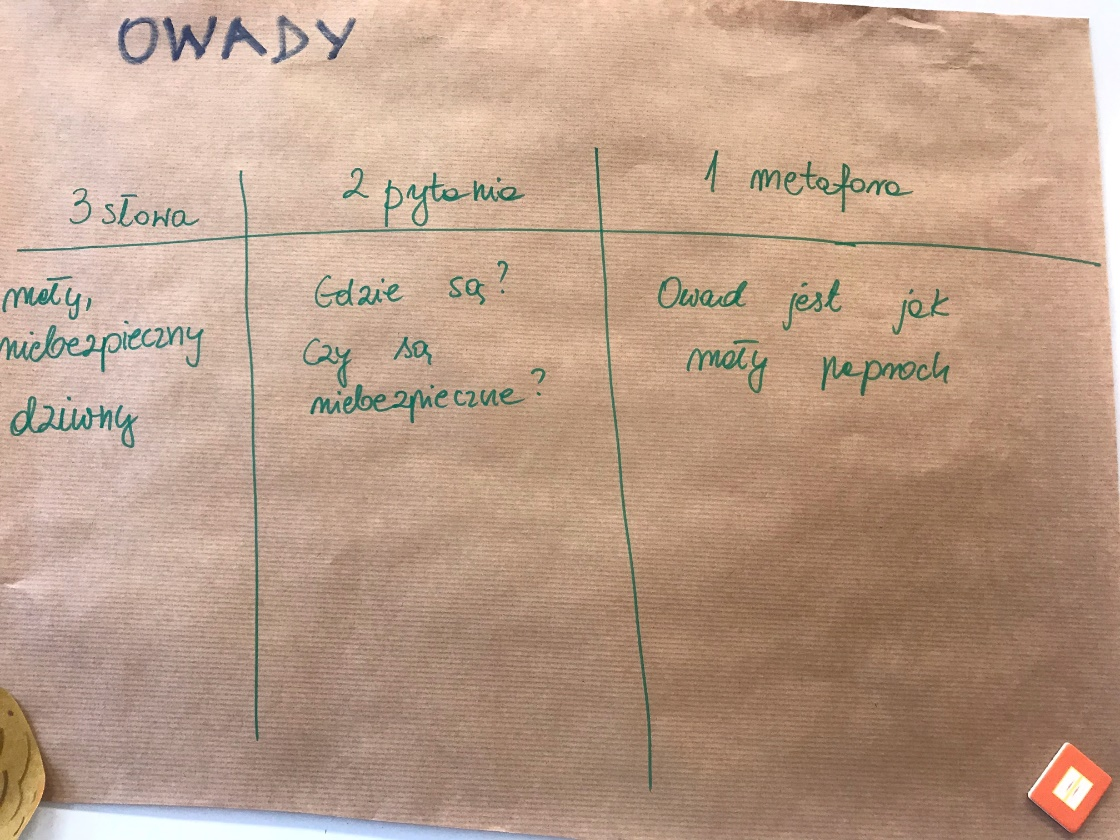 OWADY
3 słowa
2 pytania
1 metafora
mały,
niebezpieczny
dziwny
Gdzie są?
Czy są
niebezpieczne?
Owad jest jak
mały paproch